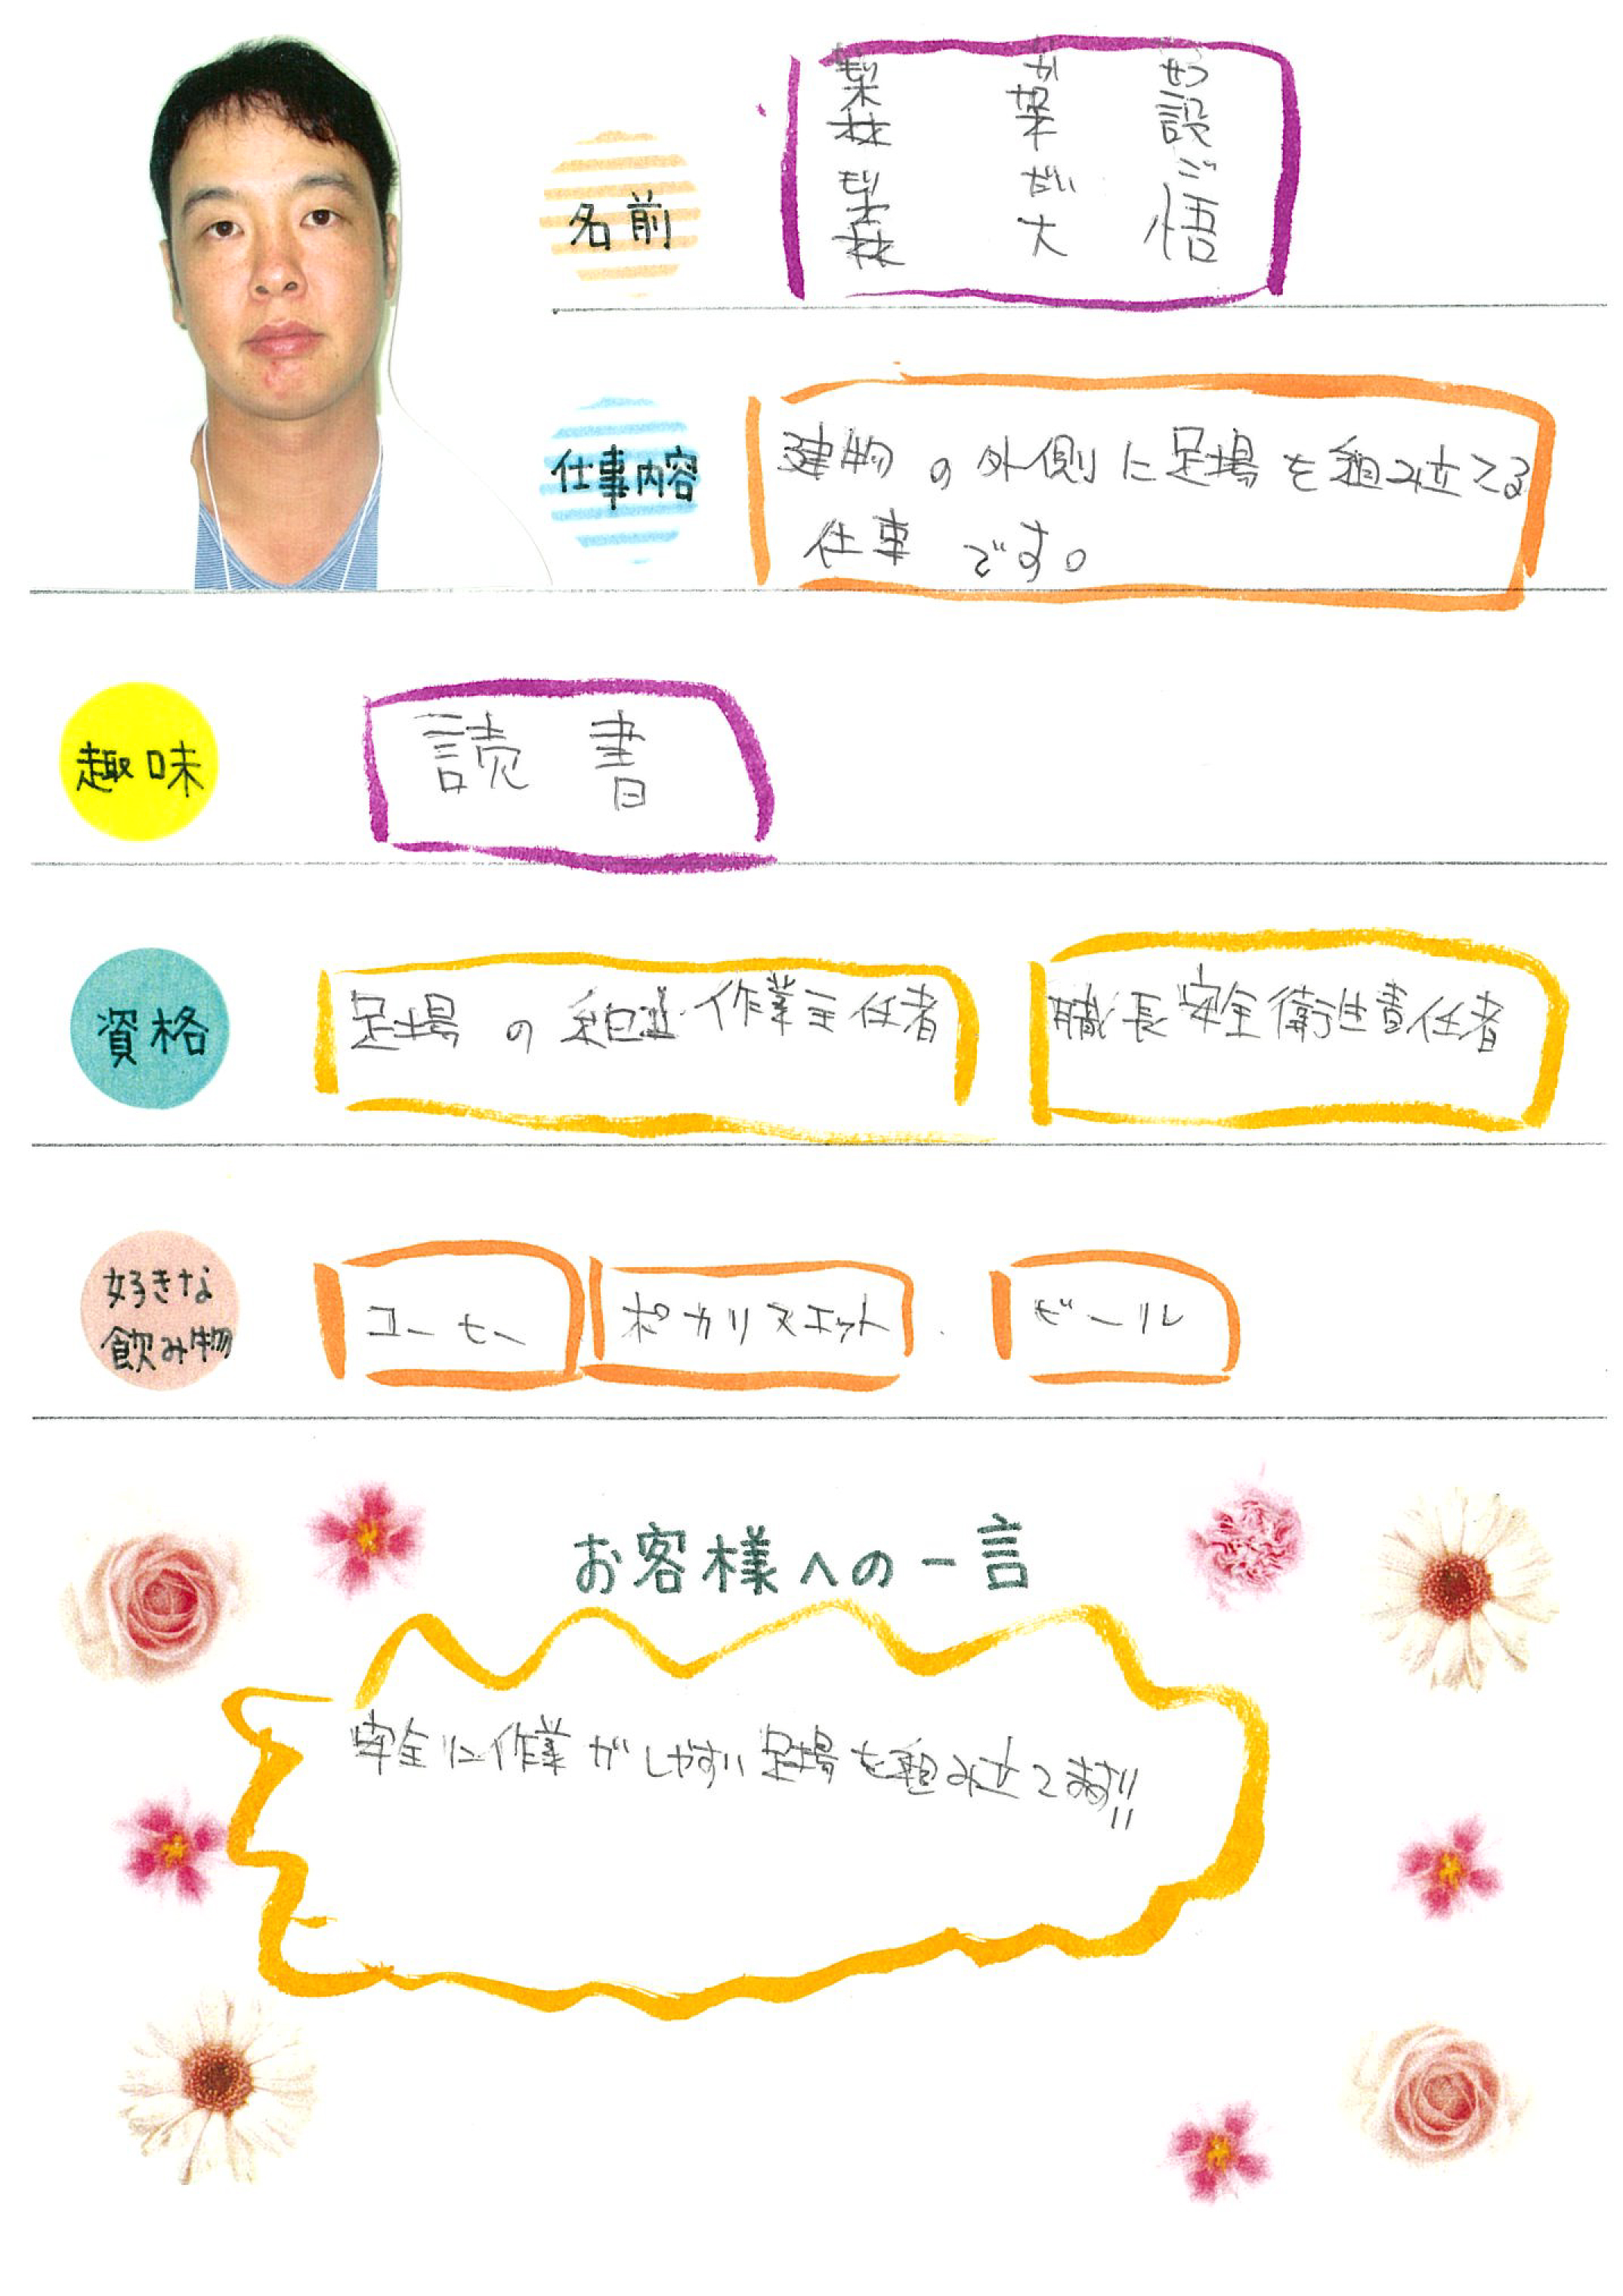 もり か せつ
森 架 設
もり だい ご
名前 森 大 悟
仕事内容 建物の外側に足場を組み立てる
仕事です。
趣味 読書
資格 足場の組立作業主任者 職長安全衛生責任者
好きな
飲み物 コーヒー ポカリスエット ビール
お客様への一言
安全に作業がしやすい足場を組み立てます!!